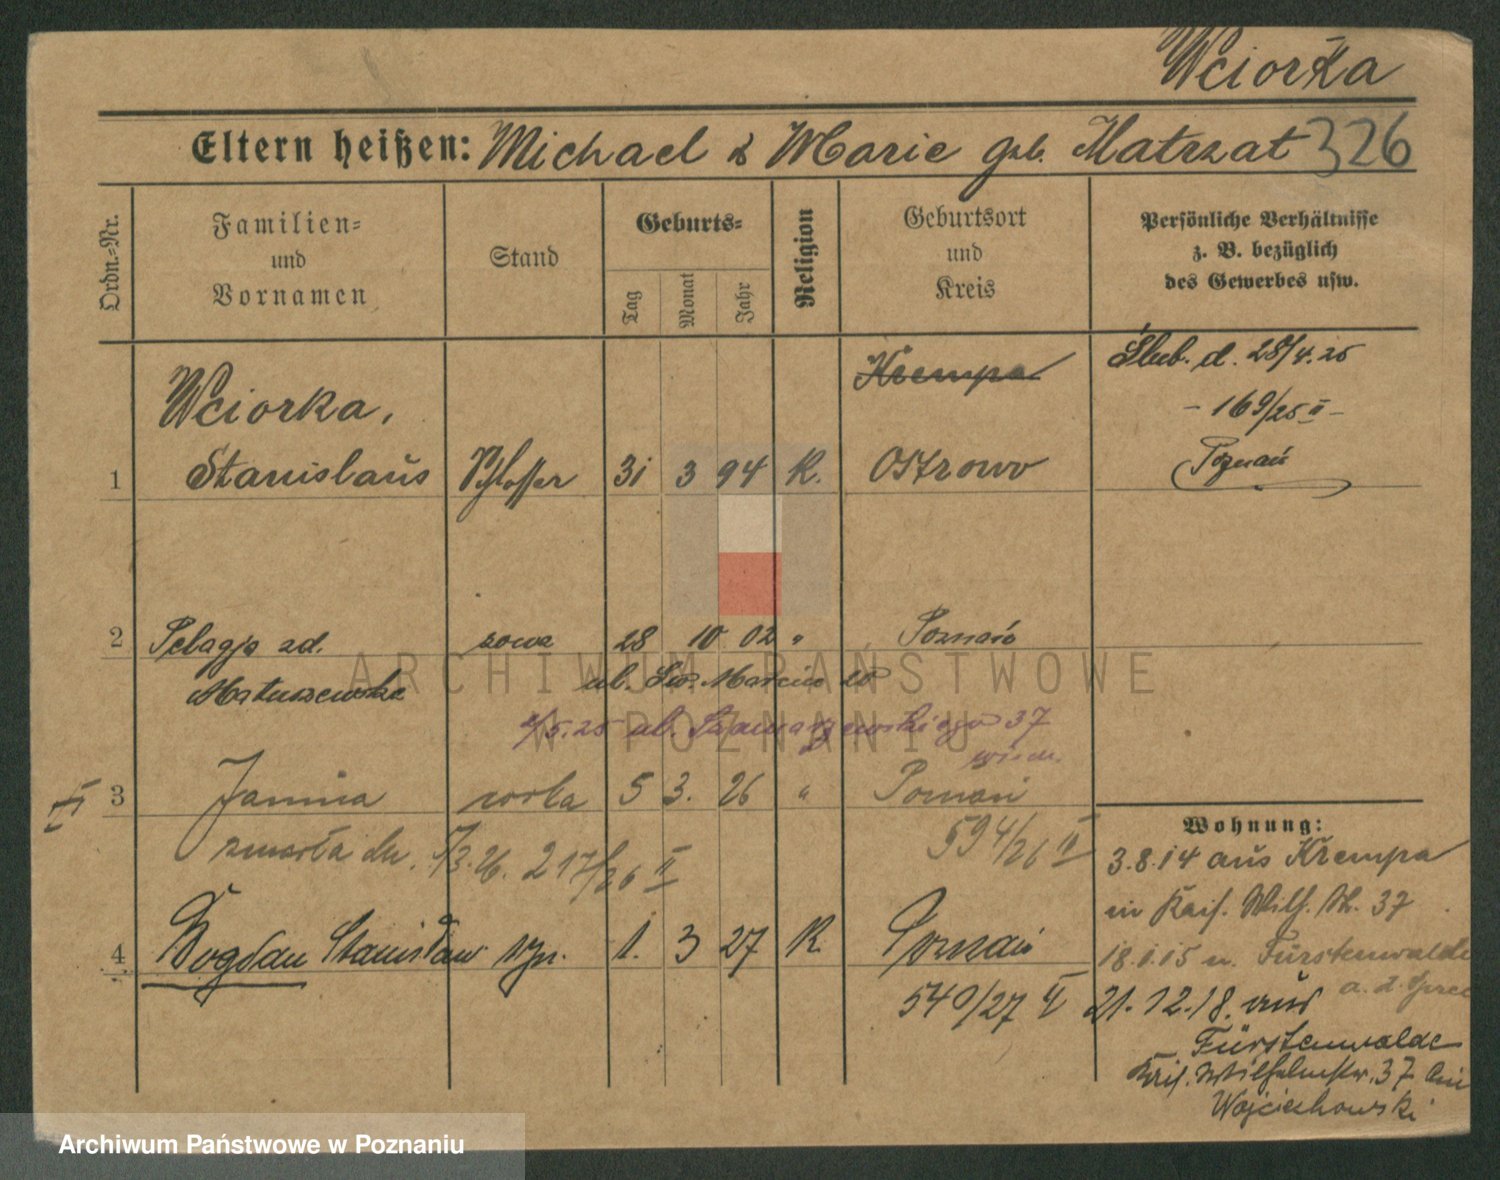 Wciorka
Eltern heißen: Michael & Marie geb. Matrzat 326
Ordn.-Nr.
Familien-
und
Vornamen
Stand
Geburts-
Tag
Monat
Jahr
Religion
Geburtsort
und
Kreis
Persönliche Verhältnisse
z. B. bezüglich
des Gewerbes usw.
Krempa
Ślub. d. 28/4.25
- 169/25 II -
Poznań
Wciorka,
1 Stanislaus Schlosser 31 3 94 K. Ostrowo
2 Pelagja zd. żona 28 10 02 " Poznań
Matuszewska ul. Św. Marcin
/5.25 ul. 37
II 3 Janina córka 5 3. 26 " Poznań
zmarła dn. 3.26. 217/26 II
594/26 II
4 Bogdan Stanisław syn. 1. 3 27 K Poznań
540/27 II
Wohnung:
3.8.14 aus Krempa
in Kais. Wilh. Str. 37
18.1.15 n. Fürstenwalde
a. d. Spree
21.12.18. aus
Fürstenwalde
Kais. Wilhelmstr. 37 bei
Wojciechowski
ARCHIWUM PAŃSTWOWE
W POZNANIU
Archiwum Państwowe w Poznaniu